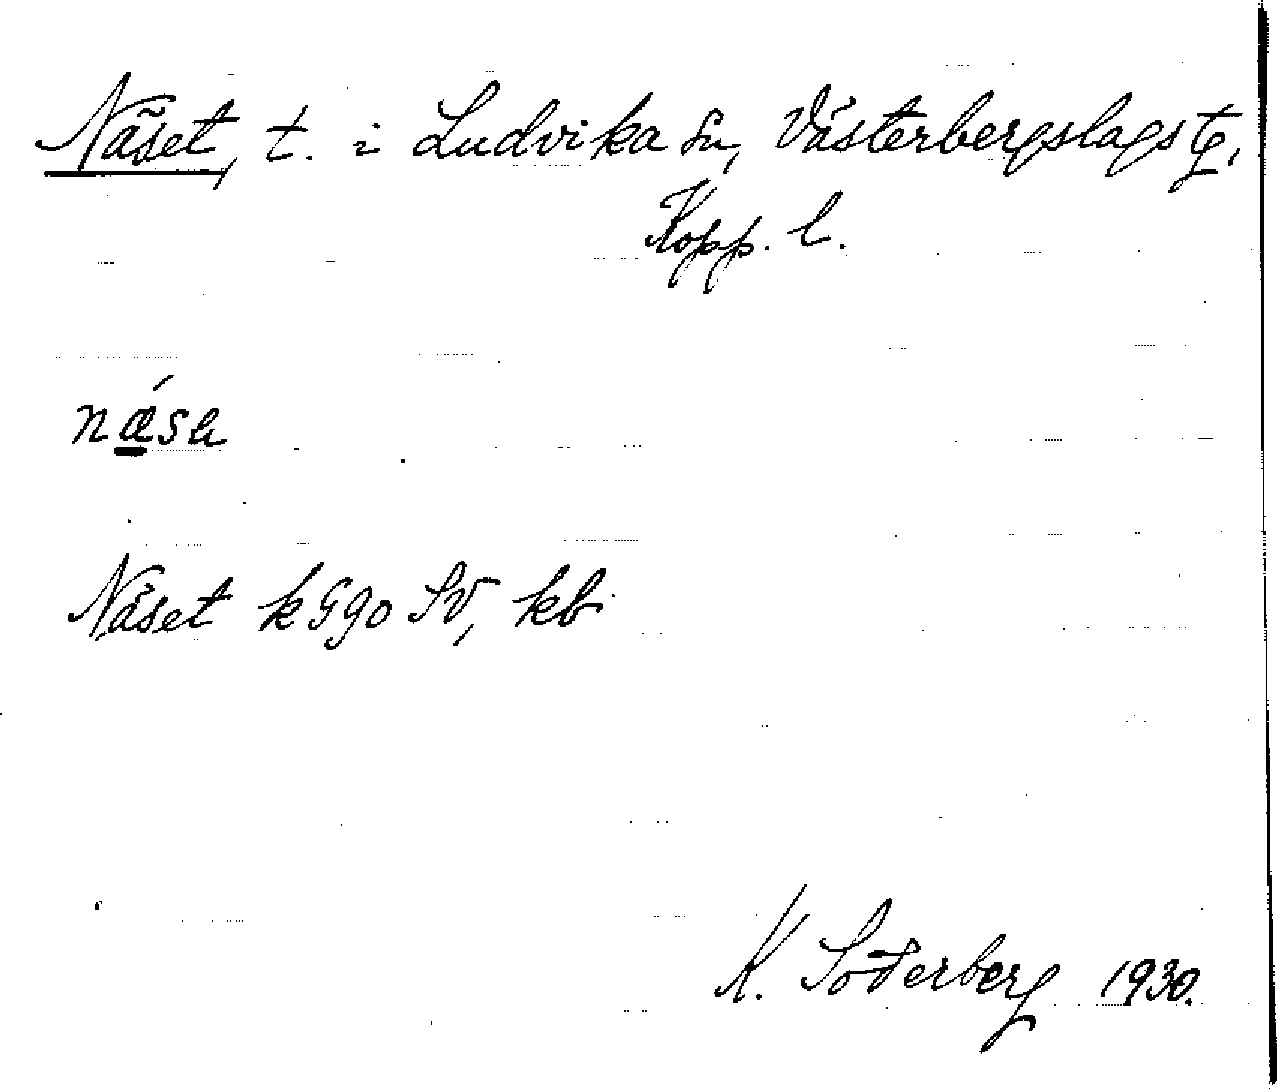 Näset, t. i Ludvika sn, Västerbergslags tg,
Kopp. l.
Näset k 590 SV, kb
K. Söderberg 1930.